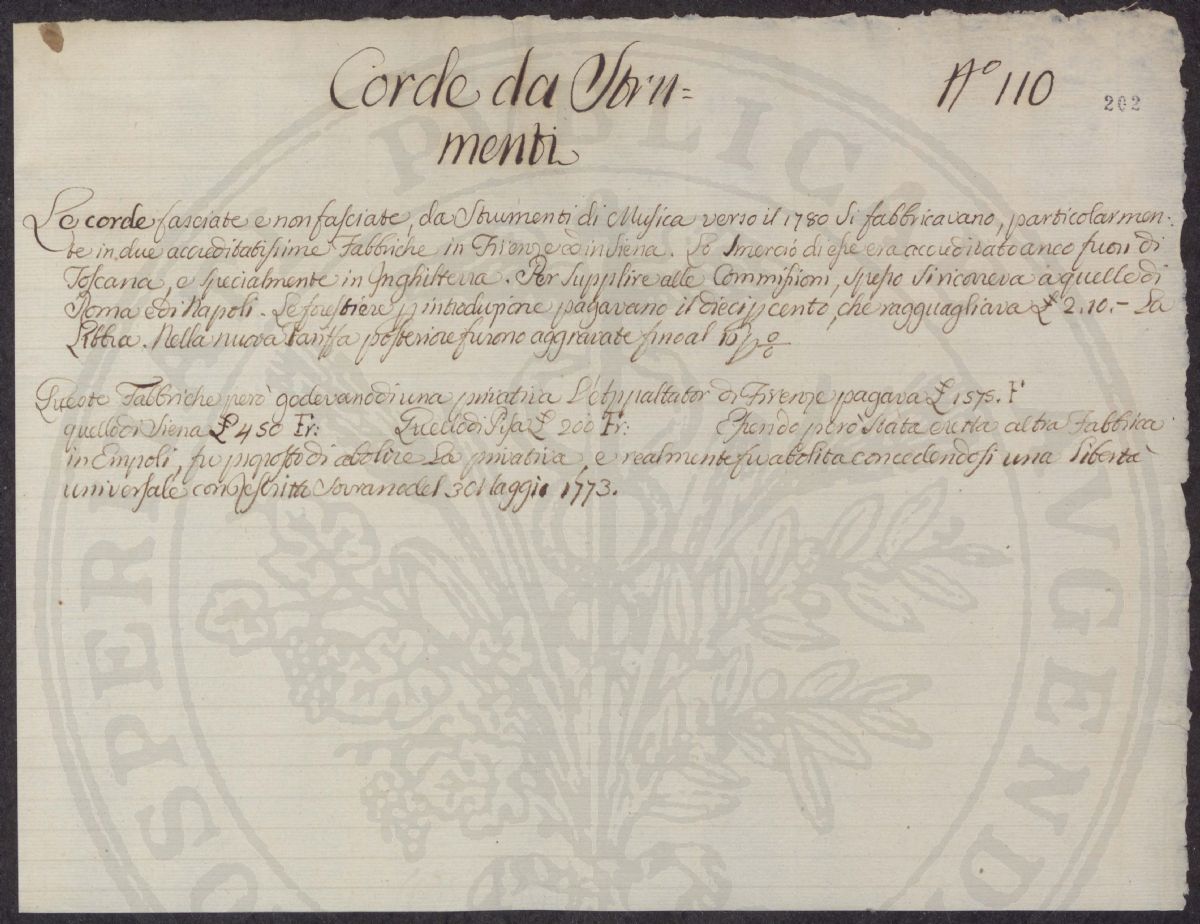 Corde da Stru=
menti
N.o 110
202
Le corde fasciate e non fasciate, da Strumenti di Musica verso il 1780 si fabbricavano, particolarmen:
te in due accreditatissime Fabbriche in Firenze ed in Siena. Lo smercio di esse era accreditato anco fuori di
Toscana, e specialmente in Inghilterra. Per supplire alle Commissioni, spesso si ricorreva a quelle di
Roma e di Napoli. Le forestiere p introduzione pagavano il dieci p cento, che ragguagliava £ 2.10.- La
Libbra. Nella nuova Tariffa posteriore furono aggravate fino al
Queste Fabbriche però godevano di una privativa L'Appaltator di Firenze pagava £ 1575. Fi
quello di Siena £ 450 Fr: Quello di Pisa £ 200 Fr: Essendo però stata eretta altra Fabbrica
in Empoli, fu proposto di abolire La privativa, e realmente fu abolita concedendosi una Libertà
universale con rescritto Sovrano del 3 Maggio 1773.
PROSPERITATI PUBLICAE AUGENDAE